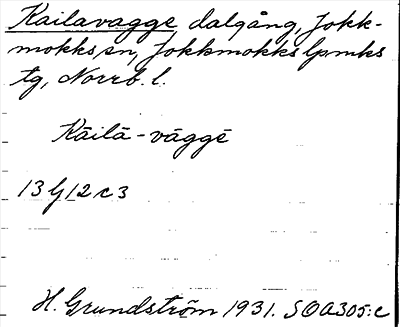 Kailavagge, dalgång, Jokk-
mokks sn, Jokkmokks lpmks
tg, Norrb. l.
Kāilā-vāggē
13 G 12 c 3
H. Grundström 1931. SOA305:c